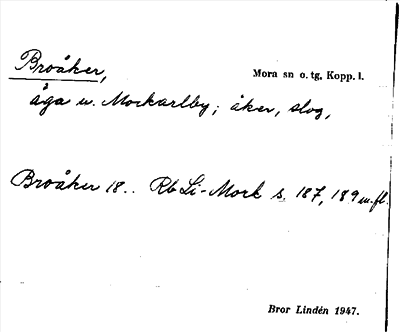 Broåker,
Mora sn o. tg, Kopp. l.
åga u. Morkarlby; åker, slog,
Broåker 18.. Rb Li-Mork s. 187, 189 m.fl.
Bror Lindén 1947.